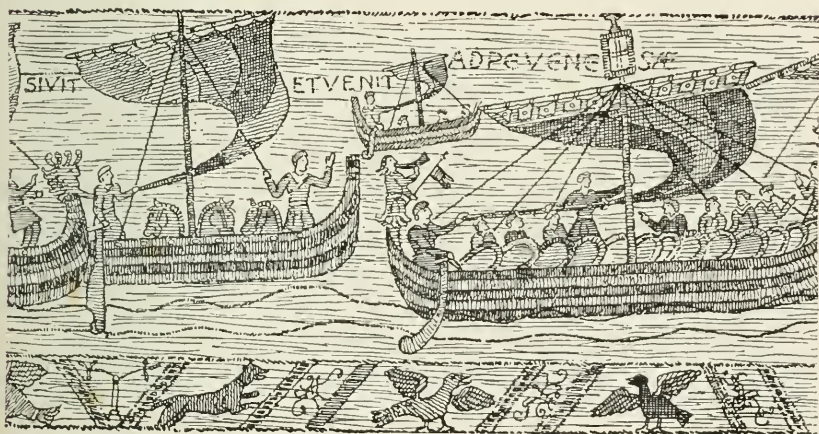 SIVIT ETVENIT ADPEVENE SÆ